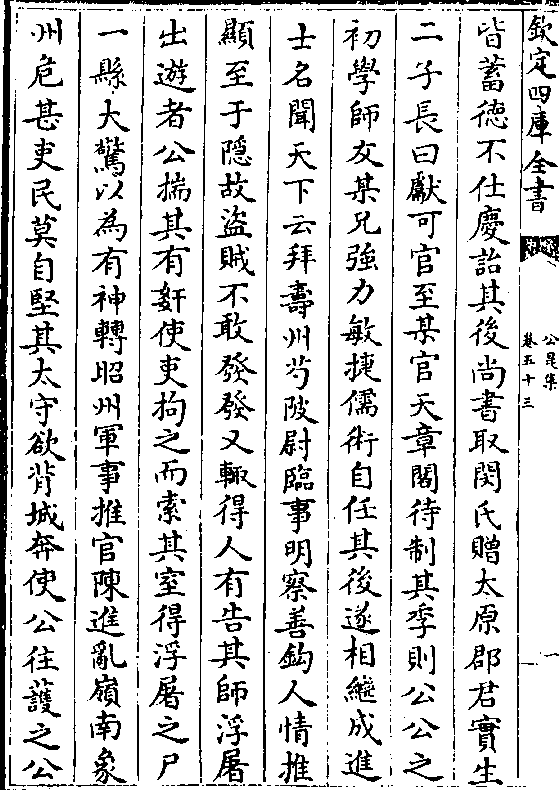 欽定四庫全書
公是集
卷五十三
一
皆蓄德不仕慶詒其後尚書取閔氏贈太原郡君實生
二子長曰獻可官至某官天章閣待制其季則公公之
初學師友某兄強力敏捷儒術自任其後遂相繼成進
士名聞天下云拜壽州芍陂尉臨事明察善鈎人情推
顯至于隠故盜賊不敢發發又輙得人有告其師浮屠
出遊者公揣其有姧使吏拘之而索其室得浮屠之尸
一縣大驚以為有神轉昭州軍事推官陳進亂嶺南象
州危甚吏民莫自堅其太守欲背城奔使公往護之公